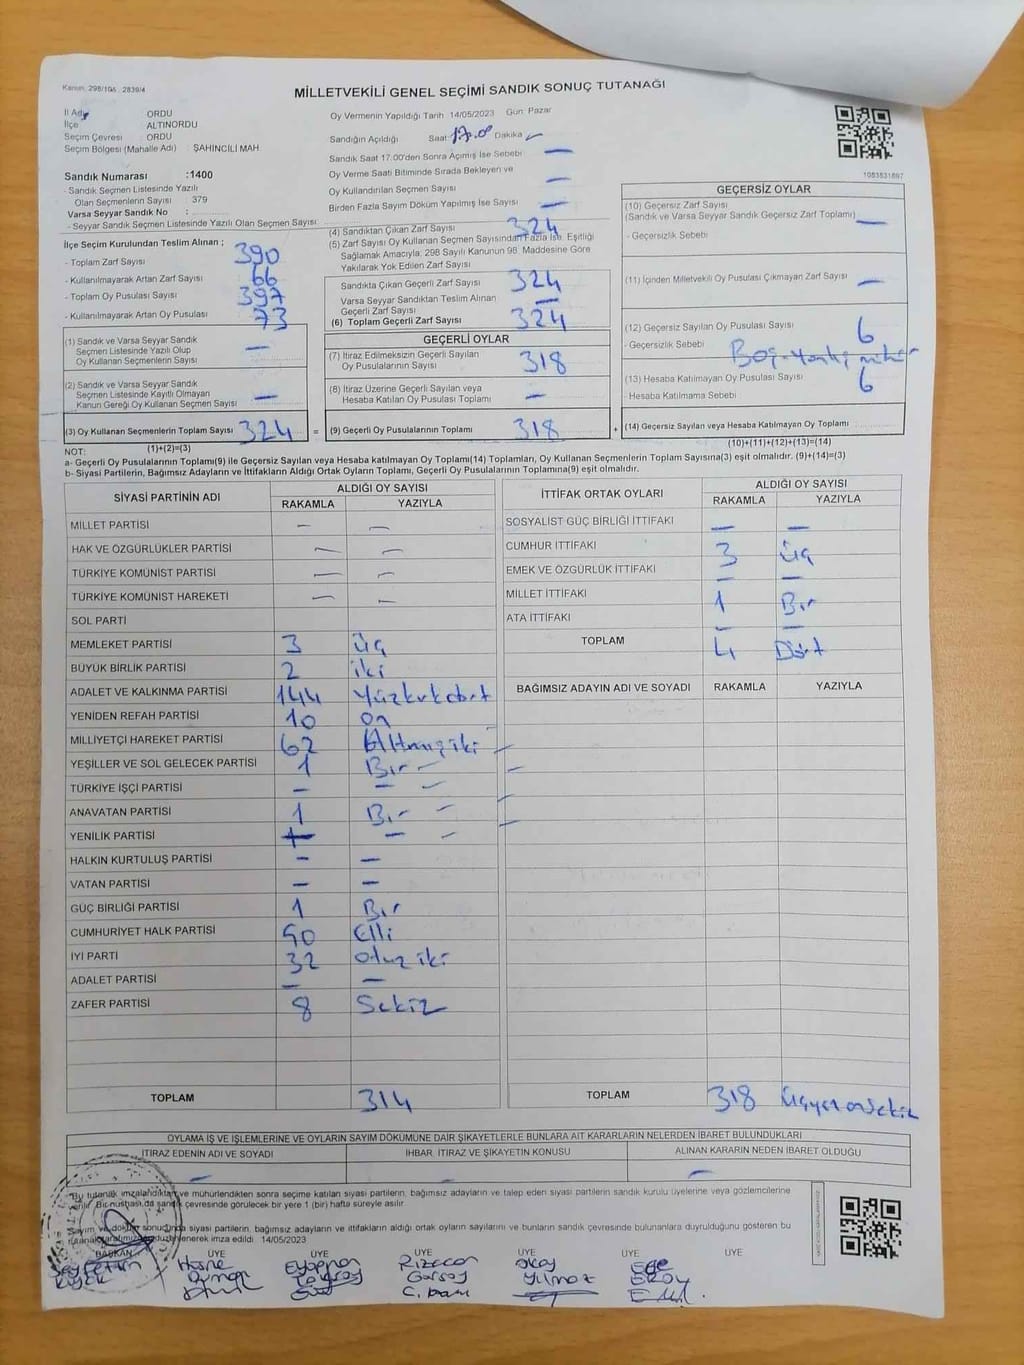 Kanun: 298/106, 2839/4
MİLLETVEKİLİ GENEL SEÇİMİ SANDIK SONUÇ TUTANAĞI
İl Adı ORDU
İlçe ALTINORDU
Seçim Çevresi ORDU
Seçim Bölgesi (Mahalle Adı) : ŞAHİNCİLİ MAH
Sandık Numarası :1400
- Sandık Seçmen Listesinde Yazılı
Olan Seçmenlerin Sayısı 379
Varsa Seyyar Sandık No :
- Seyyar Sandık Seçmen Listesinde Yazılı Olan Seçmen Sayısı:
İlçe Seçim Kurulundan Teslim Alınan ;
- Toplam Zarf Sayısı 390
- Kullanılmayarak Artan Zarf Sayısı 66
- Toplam Oy Pusulası Sayısı 397
- Kullanılmayarak Artan Oy Pusulası 73
(1) Sandık ve Varsa Seyyar Sandık
Seçmen Listesinde Yazılı Olup
Oy Kullanan Seçmenlerin Sayısı —
(2) Sandık ve Varsa Seyyar Sandık
Seçmen Listesinde Kayıtlı Olmayan
Kanun Gereği Oy Kullanan Seçmen Sayısı —
(3) Oy Kullanan Seçmenlerin Toplam Sayısı 324 =
Oy Vermenin Yapıldığı Tarih 14/05/2023 Gün: Pazar
Sandığın Açıldığı Saat 17.00 Dakika —
Sandık Saat 17.00'den Sonra Açılmış İse Sebebi —
Oy Verme Saati Bitiminde Sırada Bekleyen ve
Oy Kullandırılan Seçmen Sayısı —
Birden Fazla Sayım Döküm Yapılmış İse Sayısı —
(4) Sandıktan Çıkan Zarf Sayısı 324
(5) Zarf Sayısı Oy Kullanan Seçmen Sayısından Fazla İse, Eşitliği
Sağlamak Amacıyla; 298 Sayılı Kanunun 98. Maddesine Göre
Yakılarak Yok Edilen Zarf Sayısı
Sandıkta Çıkan Geçerli Zarf Sayısı 324
Varsa Seyyar Sandıktan Teslim Alınan
Geçerli Zarf Sayısı —
(6) Toplam Geçerli Zarf Sayısı 324
GEÇERLİ OYLAR
(7) İtiraz Edilmeksizin Geçerli Sayılan
Oy Pusulalarının Sayısı 318
(8) İtiraz Üzerine Geçerli Sayılan veya
Hesaba Katılan Oy Pusulası Toplamı —
(9) Geçerli Oy Pusulalarının Toplamı 318 +
1083831897
GEÇERSİZ OYLAR
(10) Geçersiz Zarf Sayısı
(Sandık ve Varsa Seyyar Sandık Geçersiz Zarf Toplamı) —
- Geçersizlik Sebebi
(11) İçinden Milletvekili Oy Pusulası Çıkmayan Zarf Sayısı —
(12) Geçersiz Sayılan Oy Pusulası Sayısı 6
- Geçersizlik Sebebi Boş-
(13) Hesaba Katılmayan Oy Pusulası Sayısı 6
Hesaba Katılmama Sebebi
(14) Geçersiz Sayılan veya Hesaba Katılmayan Oy Pusulası Toplamı
NOT: (1)+(2)=(3) (10)+(11)+(12)+(13)=(14)
a- Geçerli Oy Pusulalarının Toplamı(9) ile Geçersiz Sayılan veya Hesaba katılmayan Oy Pusulası Toplamı(14) Toplamları, Oy Kullanan Seçmenlerin Toplam Sayısına(3) eşit olmalıdır. (9)+(14)=(3)
b- Siyasi Partilerin, Bağımsız Adayların ve İttifakların Aldığı Ortak Oyların Toplamı, Geçerli Oy Pusulalarının Toplamına(9) eşit olmalıdır.
SİYASİ PARTİNİN ADI ALDIĞI OY SAYISI
RAKAMLA YAZIYLA
MİLLET PARTİSİ — —
HAK VE ÖZGÜRLÜKLER PARTİSİ — —
TÜRKİYE KOMÜNİST PARTİSİ — —
TÜRKİYE KOMÜNİST HAREKETİ — —
SOL PARTİ
MEMLEKET PARTİSİ 3 üç
BÜYÜK BİRLİK PARTİSİ 2 iki
ADALET VE KALKINMA PARTİSİ 144 Yüzkırkdört
YENİDEN REFAH PARTİSİ 10 on
MİLLİYETÇİ HAREKET PARTİSİ 62 Altmışiki
YEŞİLLER VE SOL GELECEK PARTİSİ 1 Bir —
TÜRKİYE İŞÇİ PARTİSİ — — —
ANAVATAN PARTİSİ 1 Bir —
YENİLİK PARTİSİ — — —
HALKIN KURTULUŞ PARTİSİ — —
VATAN PARTİSİ — —
GÜÇ BİRLİĞİ PARTİSİ 1 Bir
CUMHURİYET HALK PARTİSİ 50 Elli
İYİ PARTİ 32 otuz iki
ADALET PARTİSİ — —
ZAFER PARTİSİ 8 Sekiz
TOPLAM 314
İTTİFAK ORTAK OYLARI ALDIĞI OY SAYISI
RAKAMLA YAZIYLA
SOSYALİST GÜÇ BİRLİĞİ İTTİFAKI — —
CUMHUR İTTİFAKI 3 üç
EMEK VE ÖZGÜRLÜK İTTİFAKI — —
MİLLET İTTİFAKI 1 Bir
ATA İTTİFAKI — —
TOPLAM 4 Dört
BAĞIMSIZ ADAYIN ADI VE SOYADI RAKAMLA YAZIYLA
TOPLAM 318 üçyüzonsekiz
OYLAMA İŞ VE İŞLEMLERİNE VE OYLARIN SAYIM DÖKÜMÜNE DAİR ŞİKAYETLERLE BUNLARA AİT KARARLARIN NELERDEN İBARET BULUNDUKLARI
İTİRAZ EDENİN ADI VE SOYADI İHBAR, İTİRAZ VE ŞİKAYETİN KONUSU ALINAN KARARIN NEDEN İBARET OLDUĞU
— — —
Bu tutanak imzalandıktan ve mühürlendikten sonra seçime katılan siyasi partilerin, bağımsız adayların ve talep eden siyasi partilerin sandık kurulu üyelerine veya gözlemcilerine
verilir. Bir nüshası da sandık çevresinde görülecek bir yere 1 (bir) hafta süreyle asılır
Sayım ve döküm sonucunda siyasi partilerin, bağımsız adayların ve ittifakların aldığı ortak oyların sayılarını ve bunların sandık çevresinde bulunanlara duyrulduğunu gösteren bu
tutanak tarafımızca düzenlenerek imza edildi. 14/05/2023
BAŞKAN ÜYE ÜYE ÜYE ÜYE ÜYE ÜYE
Seyfettin Hasne Rızacan Okay Ege
Gürsoy Yılmaz Ersoy